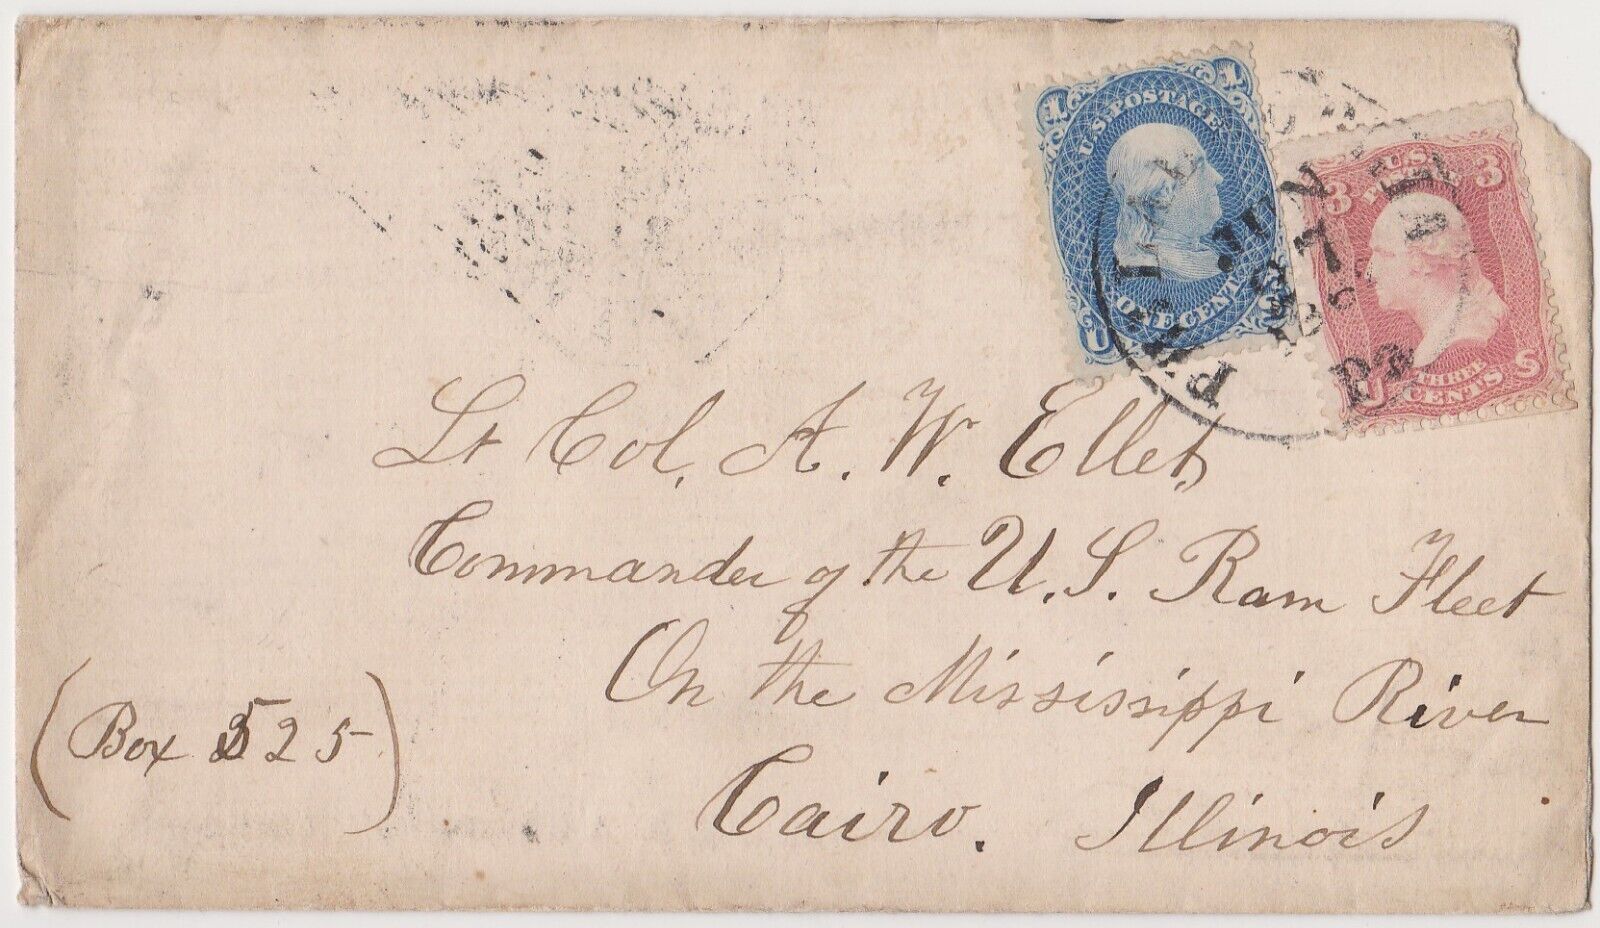 1 1
U.S. POSTAGE
ONE CENT
U S
3 3
U.S.
POSTAGE
THREE
CENTS
U S
PHILADELPHIA
JUN
27
186
Pa
Lt Col, A. W. Ellet,
Commander of the U. S. Ram Fleet
On the Mississippi River
(Box 525)
Cairo. Illinois